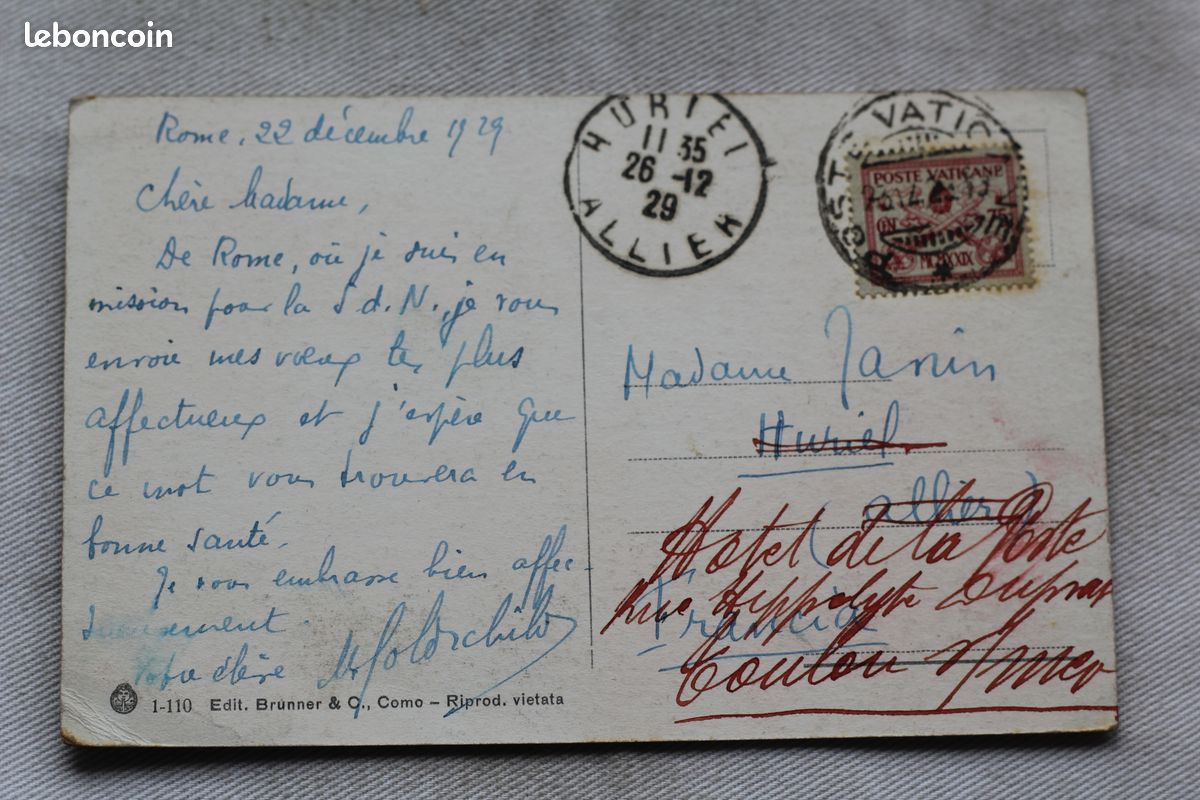 leboncoin
Rome, 22 décembre 1929
Chère Madame,
De Rome, où je suis en
mission pour la S d. N., je vous
envoie mes vœux les plus
affectueux et j'espère que
ce mot vous trouvera en
bonne santé.
Je vous embrasse bien affec-
tueusement
1-110 Edit. Brunner & C., Como – Riprod. vietata
HURIEL
11 35
26 -12
29
ALLIER
POSTE VATICANE
POSTE VATICANE
MCMXXIX
Madame Janin
Huriel
(Allier)
Francia
Hotel de la Poste
Rue Hippolyte Duprat
Toulon s/mer